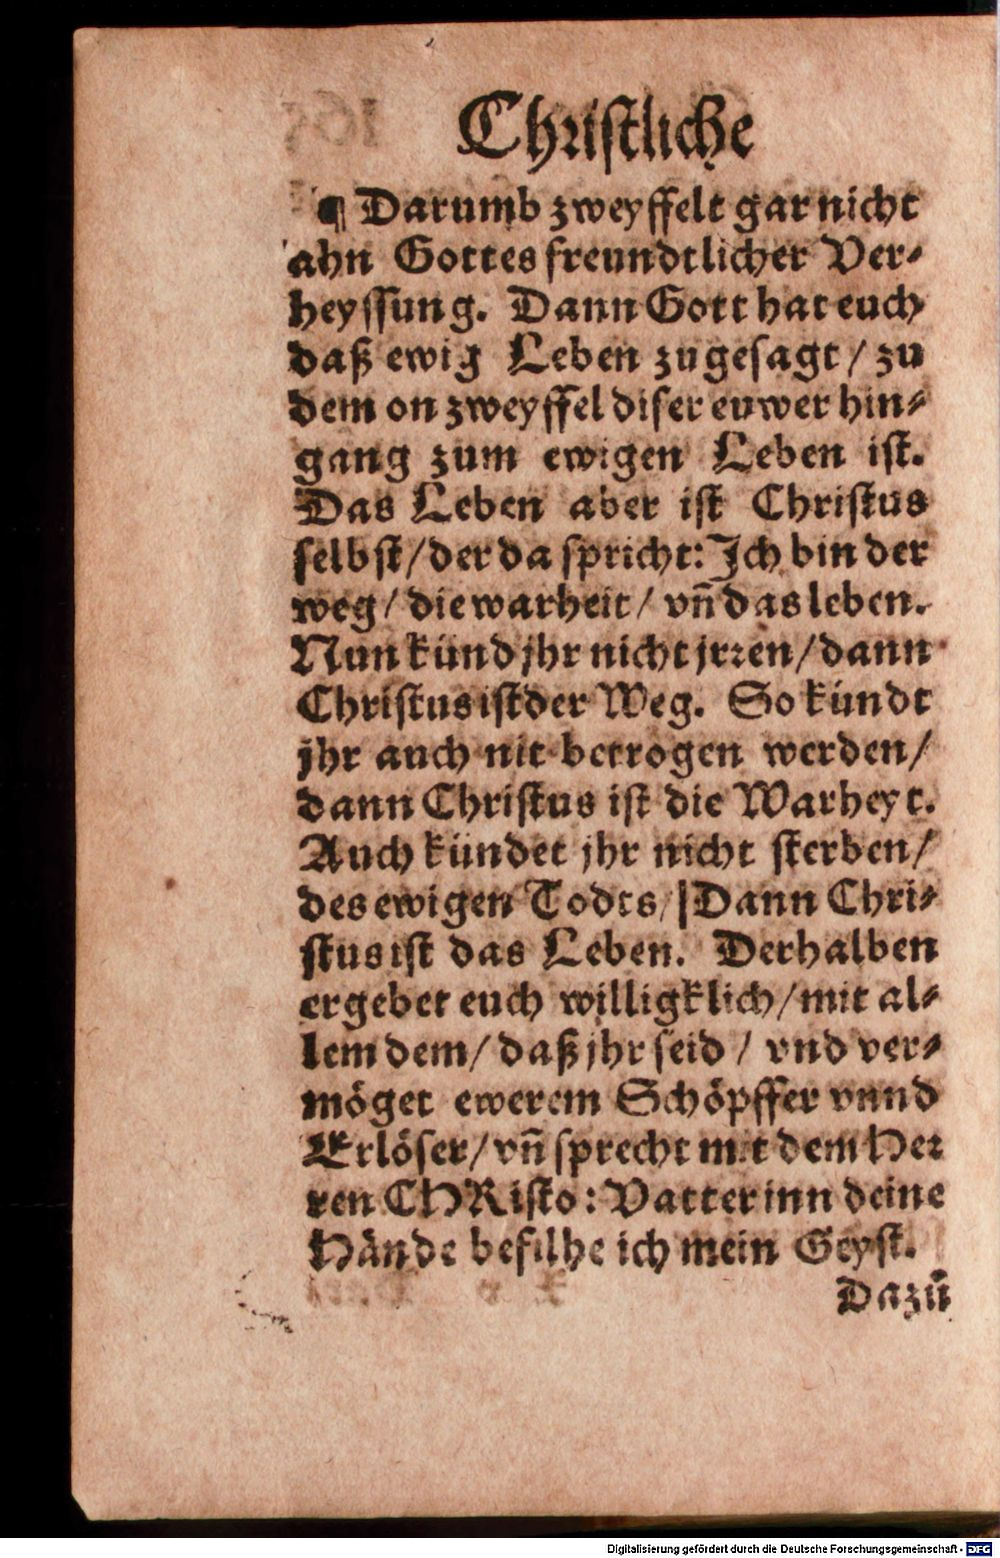 Christliche
¶ Darumb zweyffelt gar nicht
ahn Gottes freundtlicher Ver⸗
heyssung. Dann Gott hat euch
daß ewig Leben zugesagt / zu
dem on zweyffel diser euwer hin⸗
gang zum ewigen Leben ist.
Das Leben aber ist Christus
selbst / der da spricht: Ich bin der
weg / die warheit / vñ das leben.
Nun künd jhr nicht jrꝛen / dann
Christus ist der Weg. So kündt
jhr auch nit betrogen werden /
dann Christus ist die Warheyt.
Auch kündet jhr nicht sterben /
des ewigen Todts / Dann Chri⸗
stus ist das Leben. Derhalben
ergebet euch willigklich / mit al⸗
lem dem / daß jhr seid / vnd ver⸗
möget ewerem Schöpffer vnnd
Erlöser / vñ sprecht mit dem Heꝛ
ren CHRisto: Vatter inn deine
Hände befilhe ich mein Geyst.
Dazů
Digitalisierung gefördert durch die Deutsche Forschungsgemeinschaft - DFG